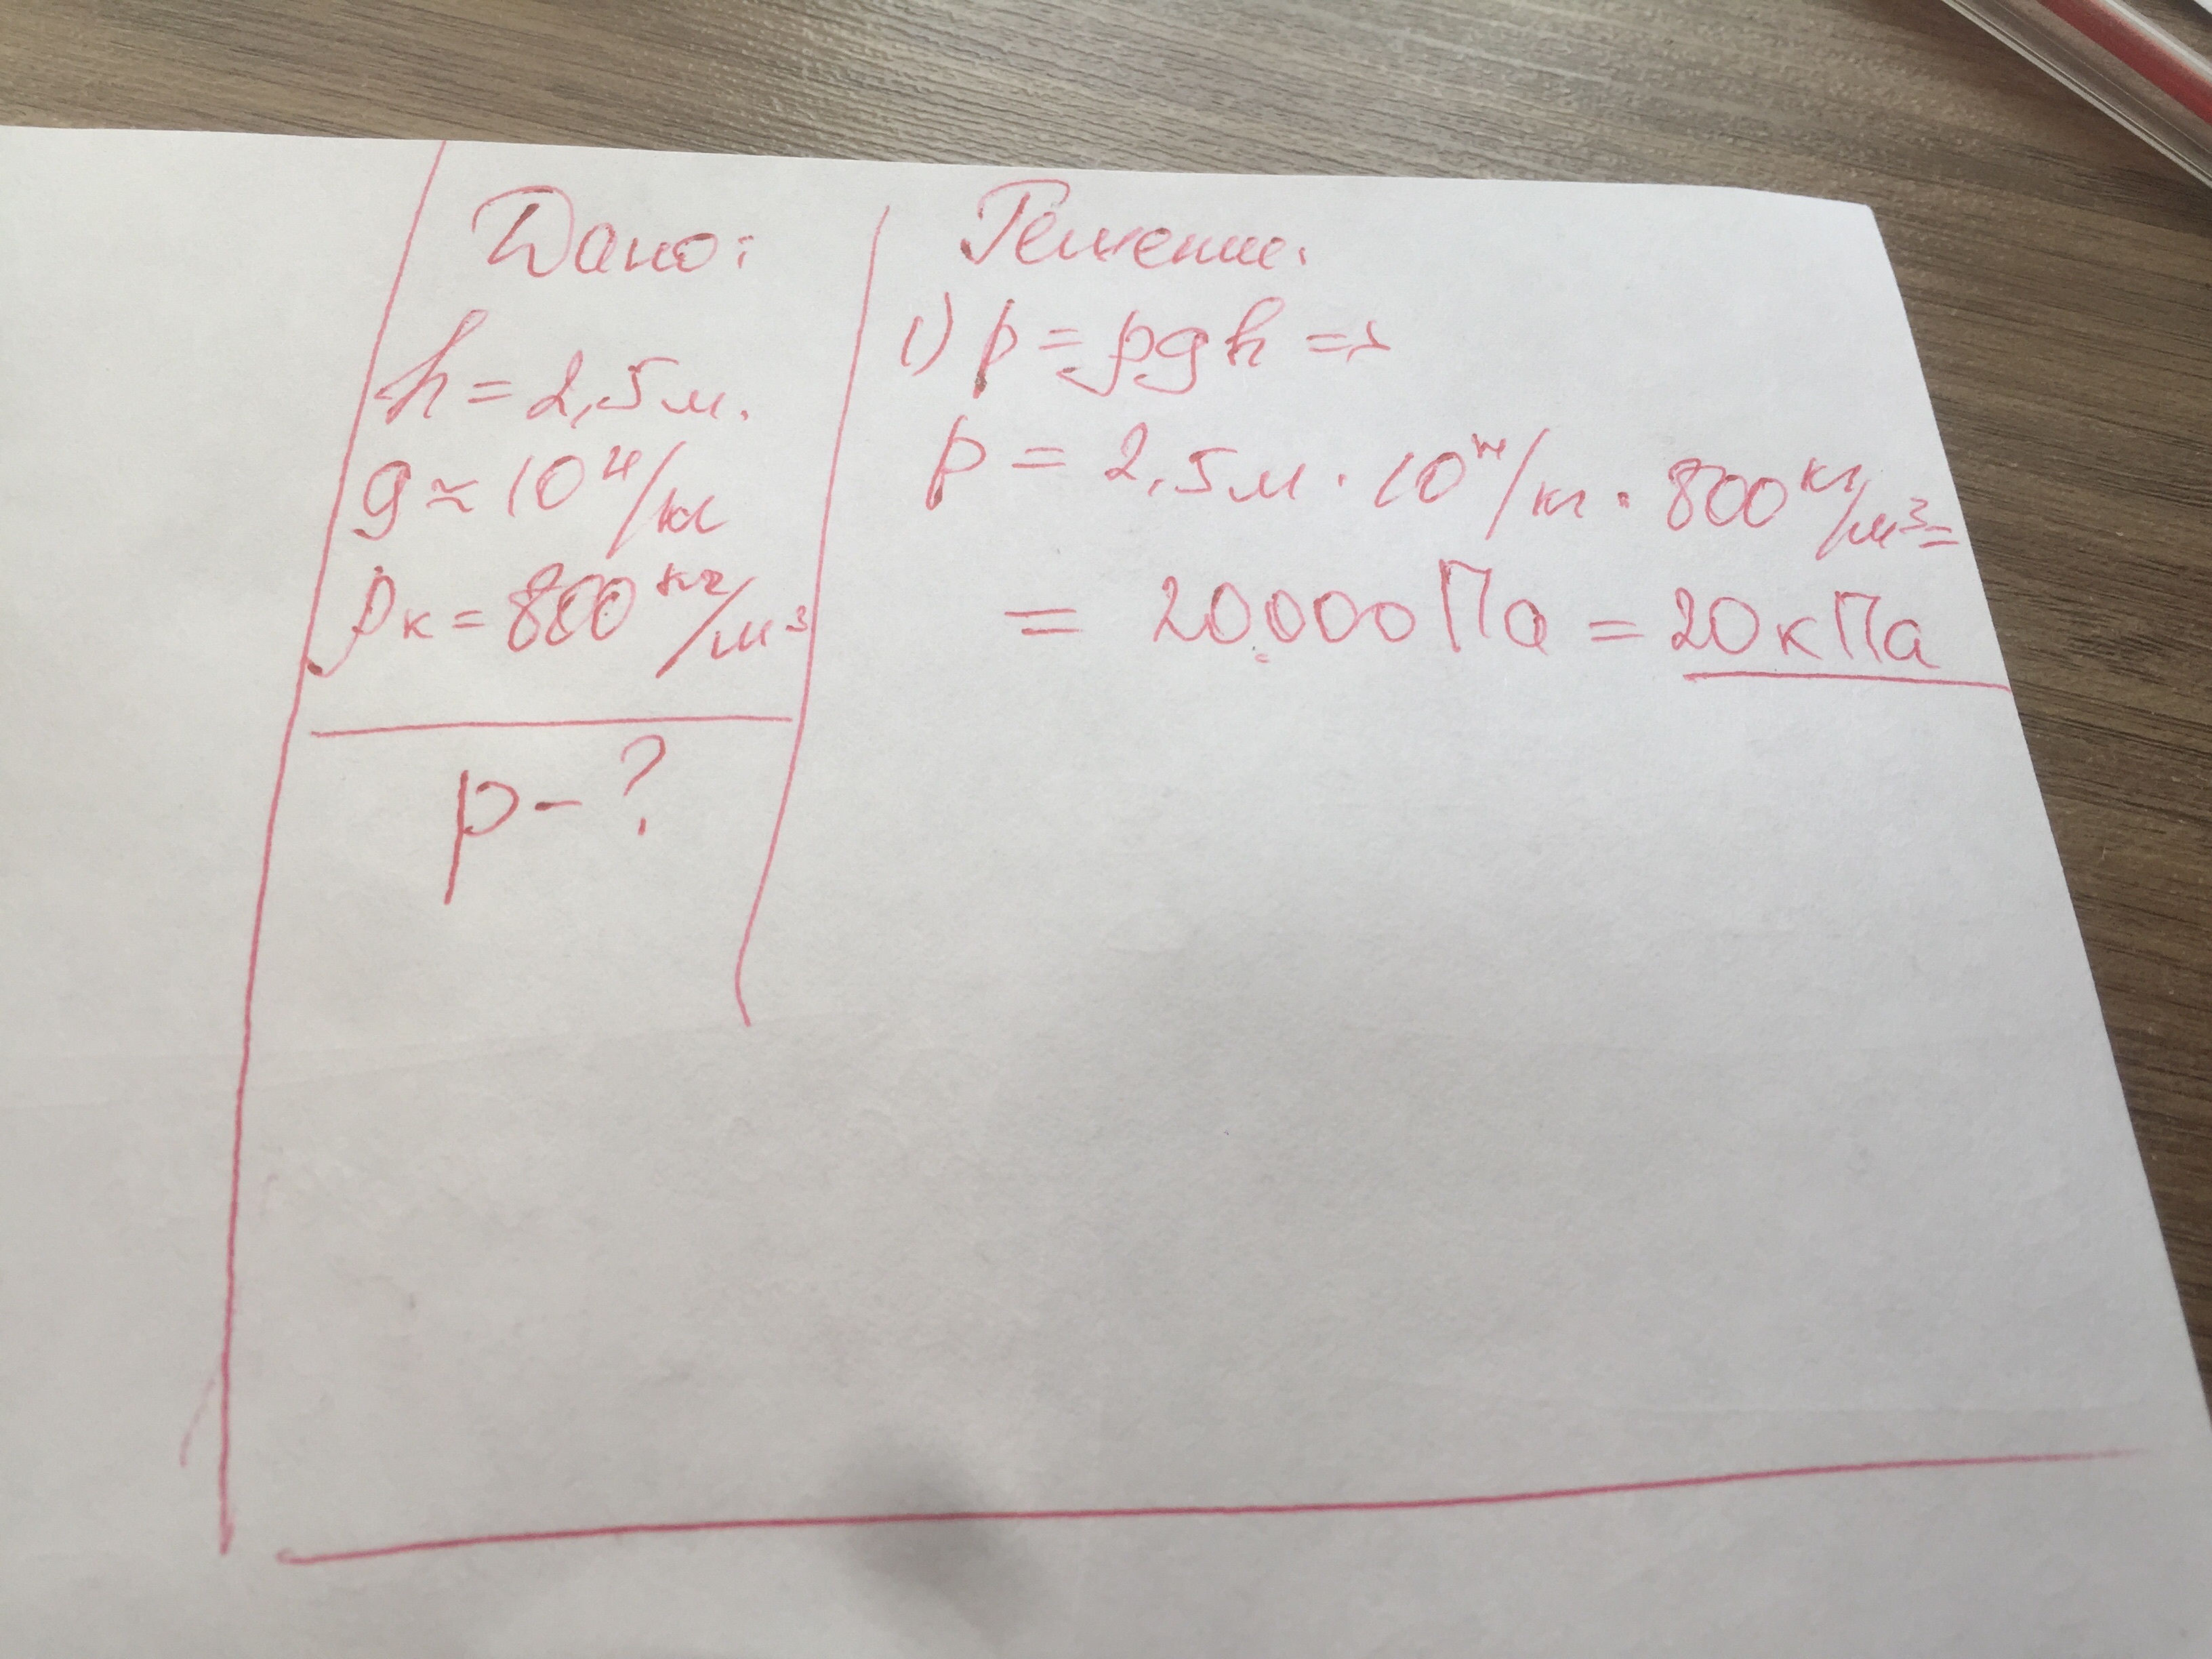 Дано:
h = 2,5 м.
g ≈ 10 Н/кг
ρк = 800 кг/м³
p - ?
Решение.
1) p = ρgh =>
p = 2,5 м · 10 Н/кг · 800 кг/м³ =
= 20.000 Па = 20 кПа